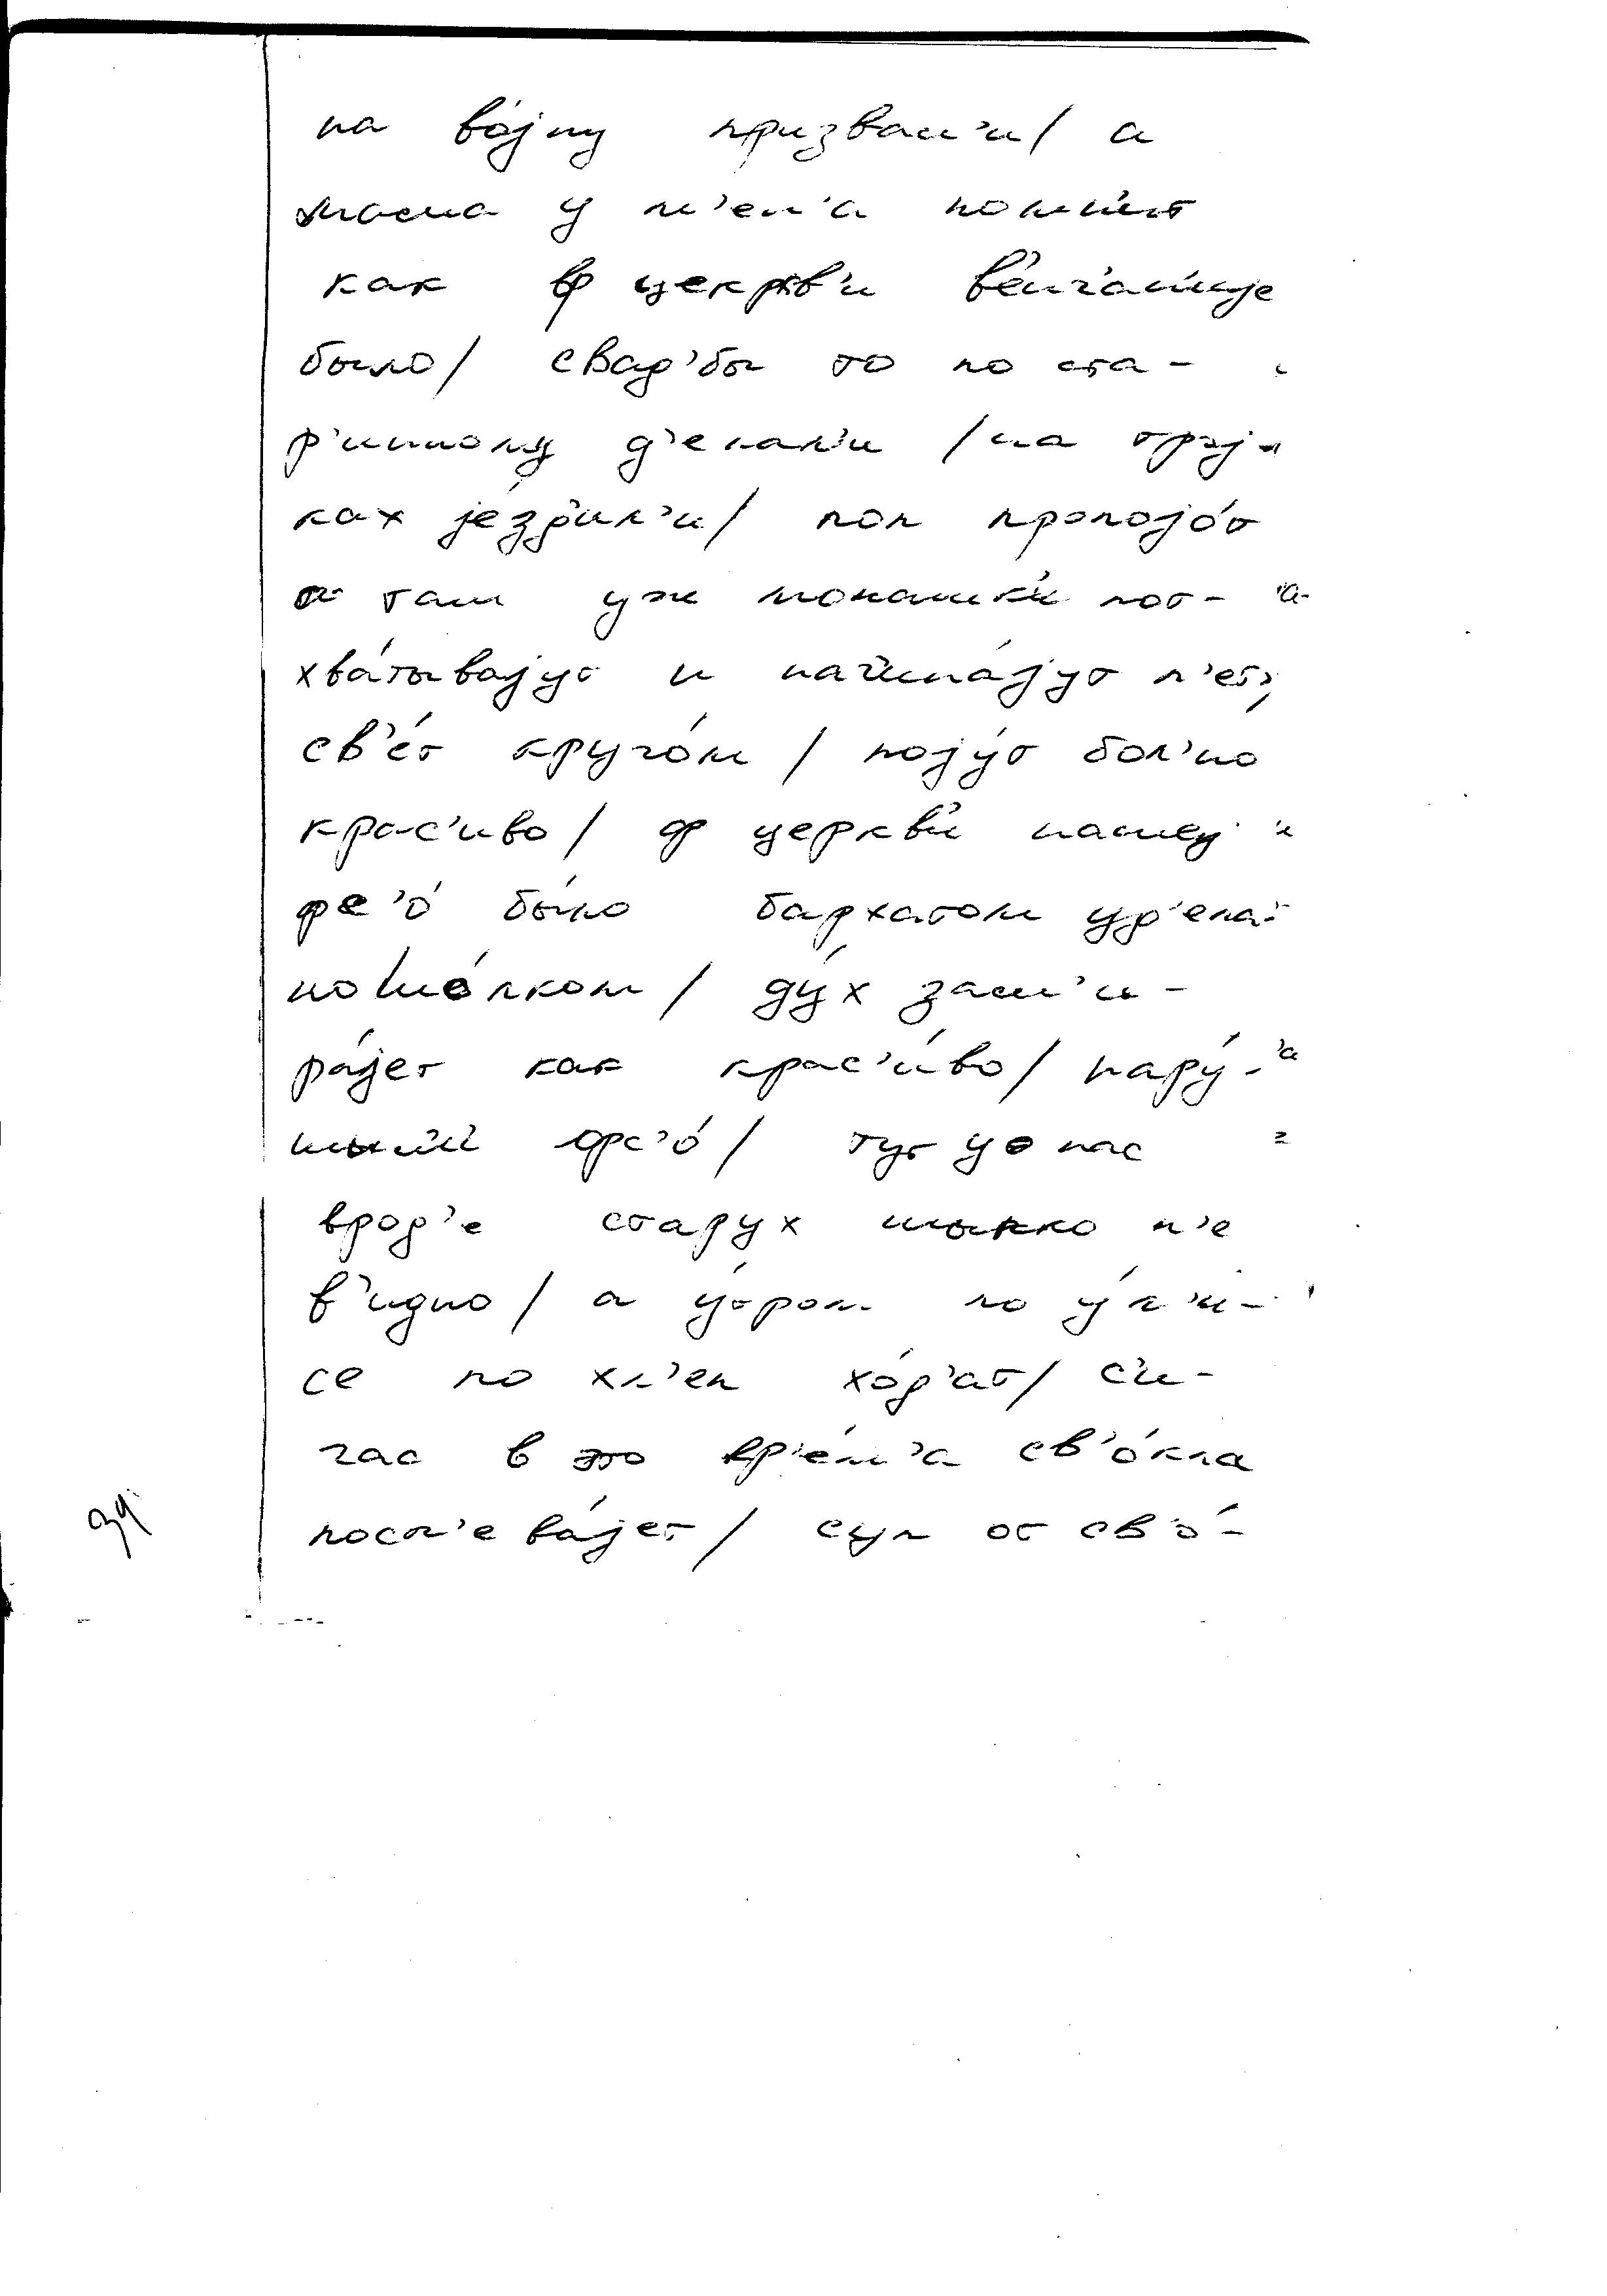 на во́jну призвал'и/ а
мама у м'ен'а помн'ит
как ф цекрв'и в'енч'ан'иje
было/ свад'бы то по ста-
р'инному д'елал'и /на трој-
ках jе́зд'ил'и/ поп пропоjо́т
а там уж монашк'и пот-
хва́тываjут и нач'ина́jут п'ет'
св'е́т круго́м / поjу́т бол'но
крас'иво/ ф церкв'и нашеj
фс'о́ бы́ло бархатом уд'ела-
но шо́лком / ду́х зам'и-
ра́jет как крас'и́во/ нару́-
шыл'и фс'о́/ тут у нас
врод'е старух шыпко н'е
в'идно/ а у́тром по у́л'и-
се по хл'еп хо́д'ат/ с'и-
час в это вр'е́м'а св'о́кла
посп'ева́jет/ суп от св'о́-
39